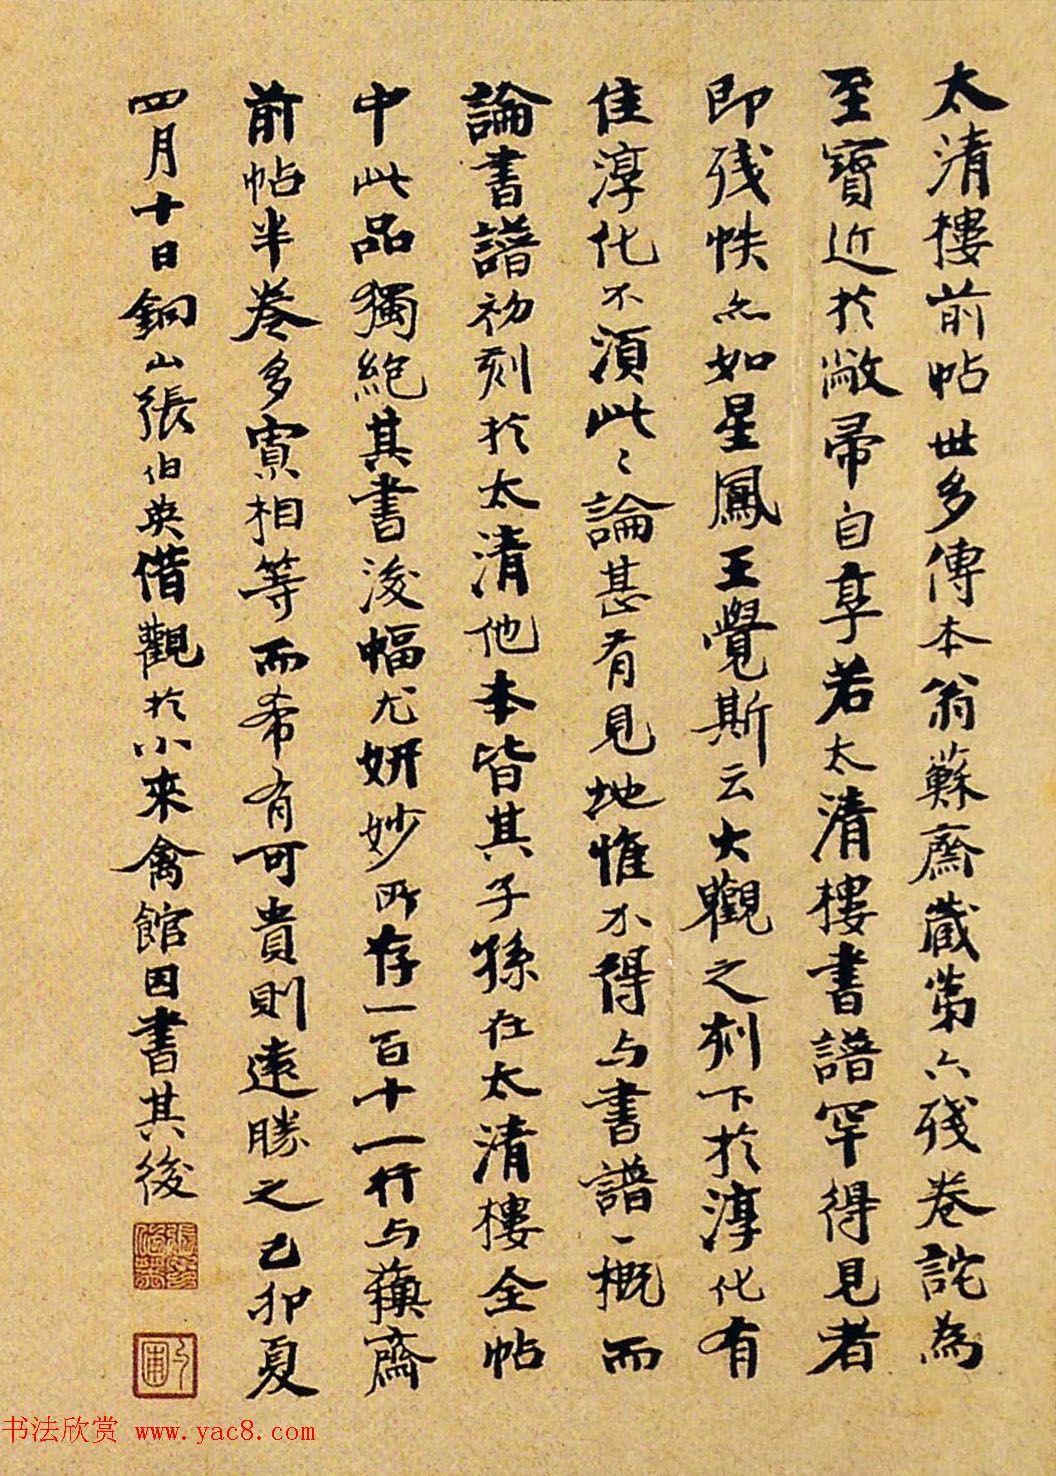 太清樓前帖世多傳本翁蘇齋藏第六殘卷詫為
至寶近於敝帚自享若太清樓書譜罕得見者
即殘帙亦如星鳳王覺斯云大觀之刻下於淳化有
佳淳化不須此〻論甚有見地惟不得与書譜一概而
論書譜初刻於太清他本皆其子孫在太清樓全帖
中此品獨絕其書後幅尤妍妙所存一百十一行与蘓齋
前帖半卷多寡相等而希有可貴則遠勝之己卯夏
四月十日銅山張伯英借觀於小來禽館因書其後
张伯英
书法欣赏 www.yac8.com